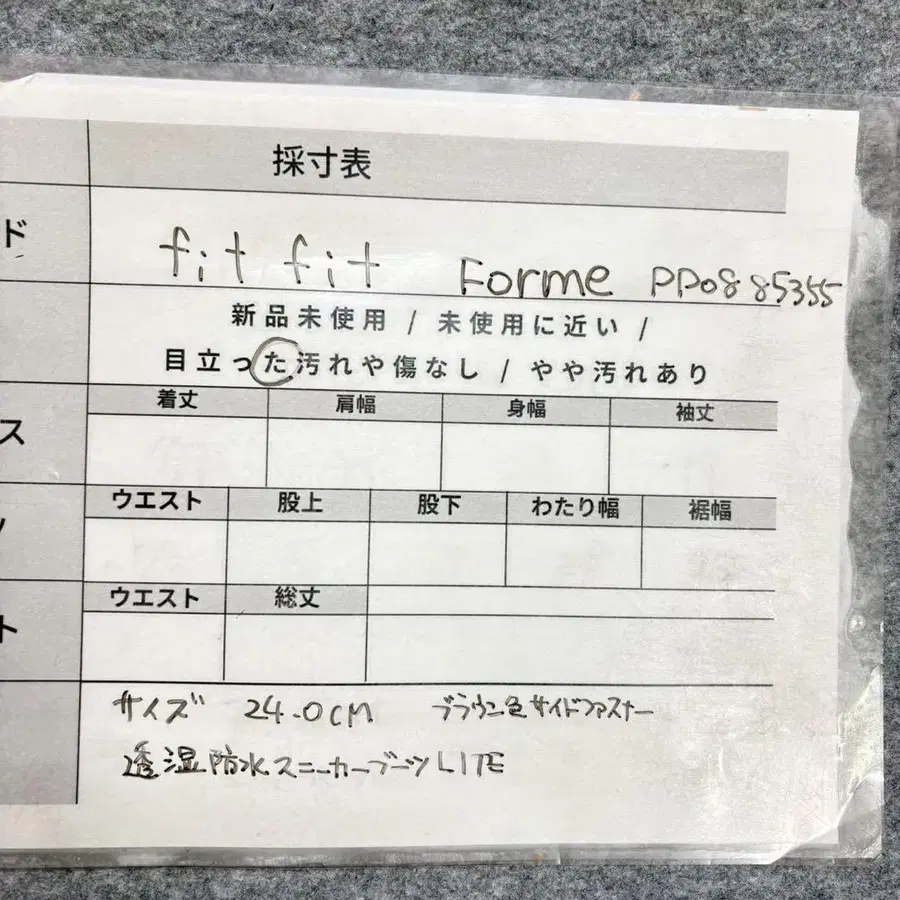 採寸表
ド
fit fit Forme PP0885355
新品未使用 / 未使用に近い /
目立った汚れや傷なし / やや汚れあり
着丈 肩幅 身幅 袖丈
ス
ウエスト 股上 股下 わたり幅 裾幅
ウエスト 総丈
ト
サイズ 24.0CM ブラウン色サイドファスナー
透湿防水スニーカーブーツLITE